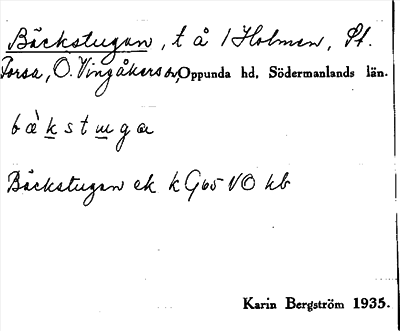 Bäckstugan, t å 1 Holmen, St.
Forsa, Ö. Vingåkers sn, Oppunda hd, Södermanlands län.
bæ̀kstuga
Bäckstugan ek k G65 VO hb
Karin Bergström 1935.